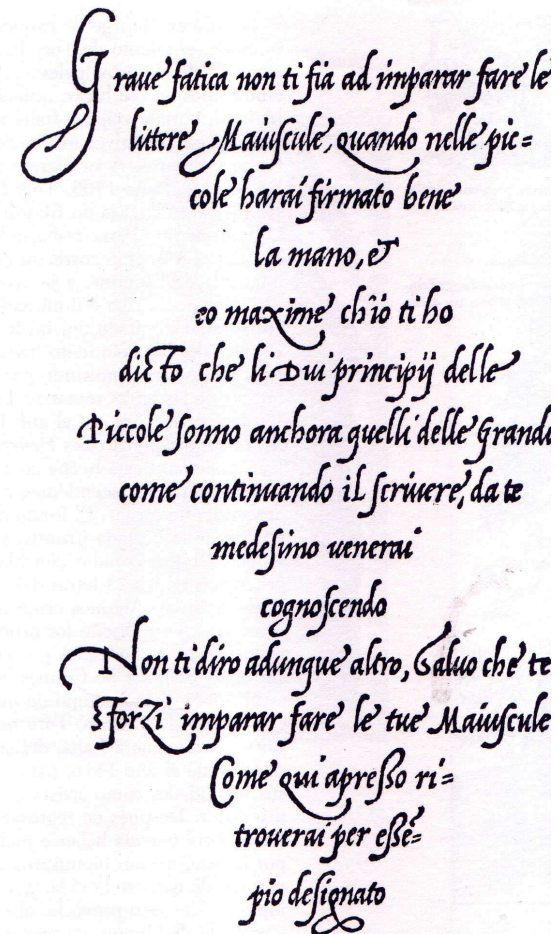 Graue fatica non ti fia ad imparar fare le
littere Maiuscule, quando nelle pic=
cole harai firmato bene
la mano, et
eo maxime ch'io ti ho
dicto che li Dui principij delle
Piccole sonno anchora quelli delle Grande
come continuando il scriuere, da te
medesimo uenerai
cognoscendo
Non ti diro adunque altro, Saluo che te
sforzi imparar fare le tue Maiuscule
Come qui apresso ri=
trouerai per essẽ=
pio designato